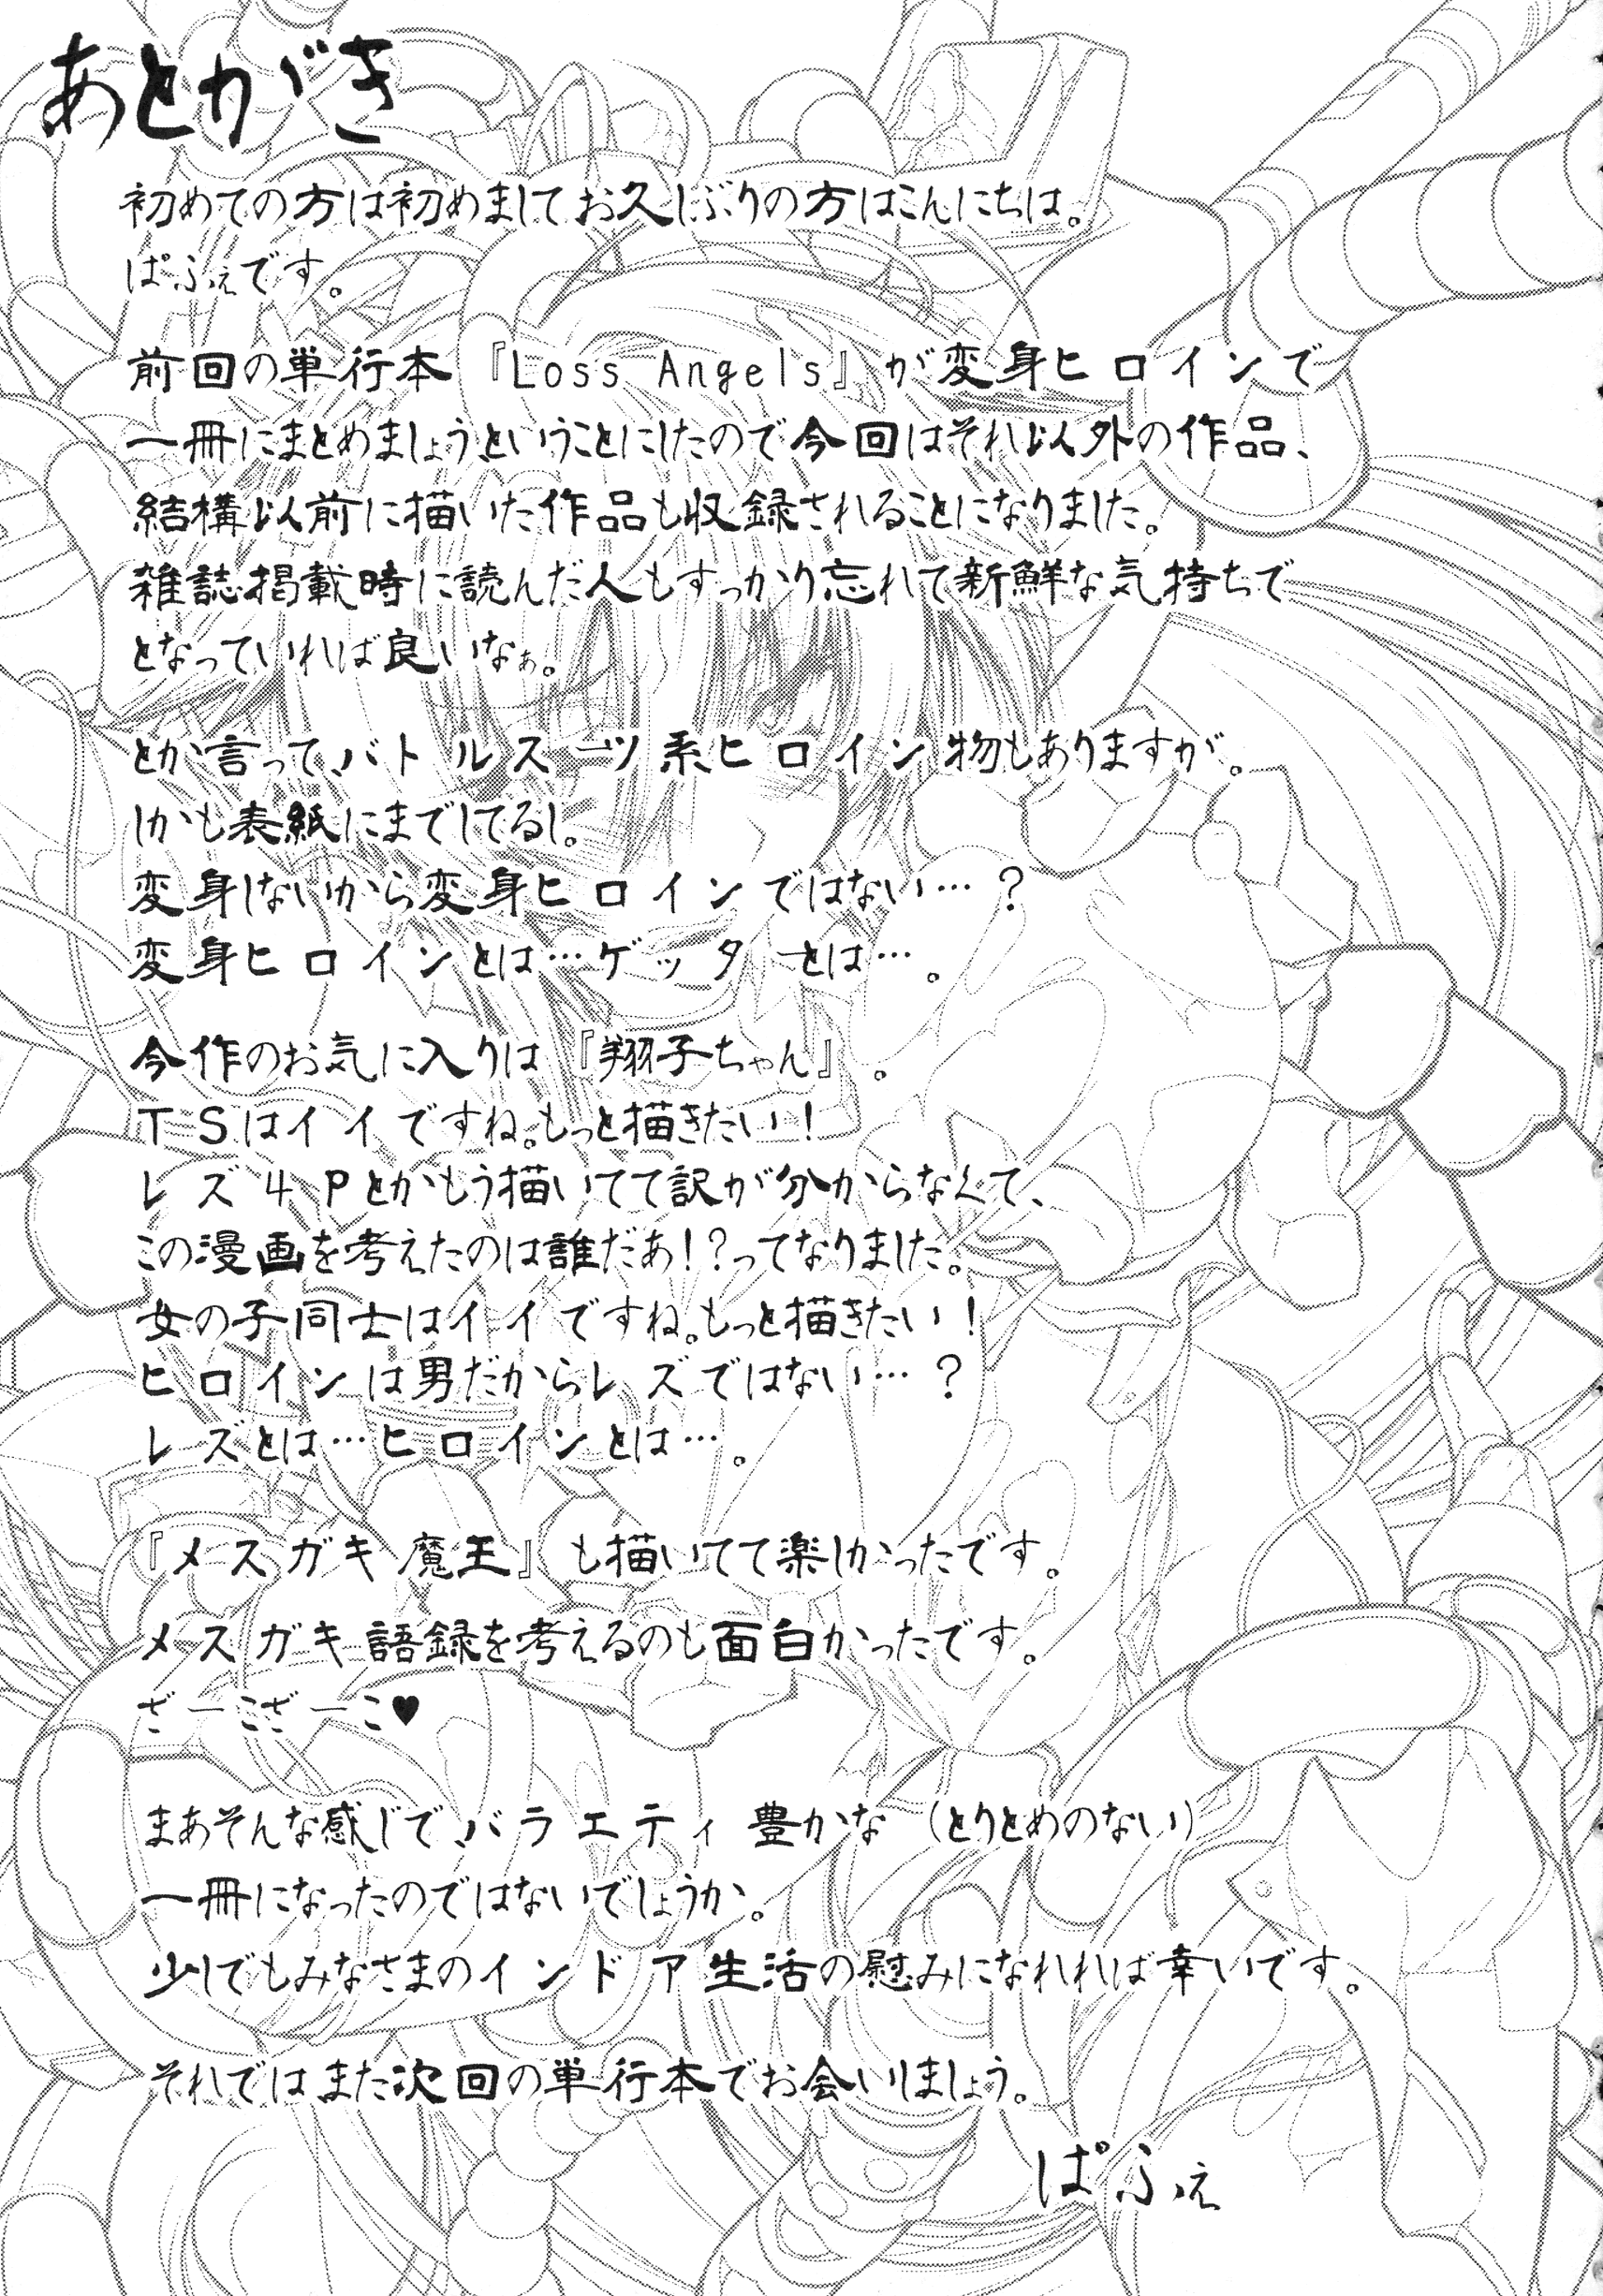 あとがき
初めての方は初めましてお久しぶりの方はこんにちは。
ぱふぇです。
前回の単行本『Loss Angels』が変身ヒロインで
一冊にまとめましょうということにしたので今回はそれ以外の作品、
結構以前に描いた作品も収録されることになりました。
雑誌掲載時に読んだ人もすっかり忘れて新鮮な気持ちで
となっていれば良いなぁ。
とか言って、バトルスーツ系ヒロイン物もありますが。
しかも表紙にまでしてるし。
変身しないから変身ヒロインではない…？
変身ヒロインとは…ゲッターとは…。
今作のお気に入りは『翔子ちゃん』。
ＴＳはイイですね。もっと描きたい！
レズ４Ｐとかもう描いてて訳が分からなくて、
この漫画を考えたのは誰だあ！？ってなりました。
女の子同士はイイですね。もっと描きたい！
ヒロインは男だからレズではない…？
レズとは…ヒロインとは…。
『メスガキ魔王』も描いてて楽しかったです。
メスガキ語録を考えるのも面白かったです。
ざーこざーこ♥
まあそんな感じでバラエティ豊かな（とりとめのない）
一冊になったのではないでしょうか。
少しでもみなさまのインドア生活の慰みになれれば幸いです。
それではまた次回の単行本でお会いしましょう。
ぱふぇ